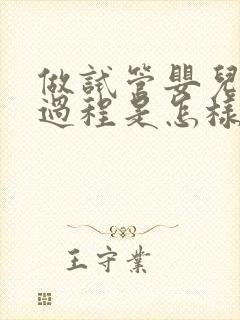 做試管嬰兒
過程是怎樣
王守業